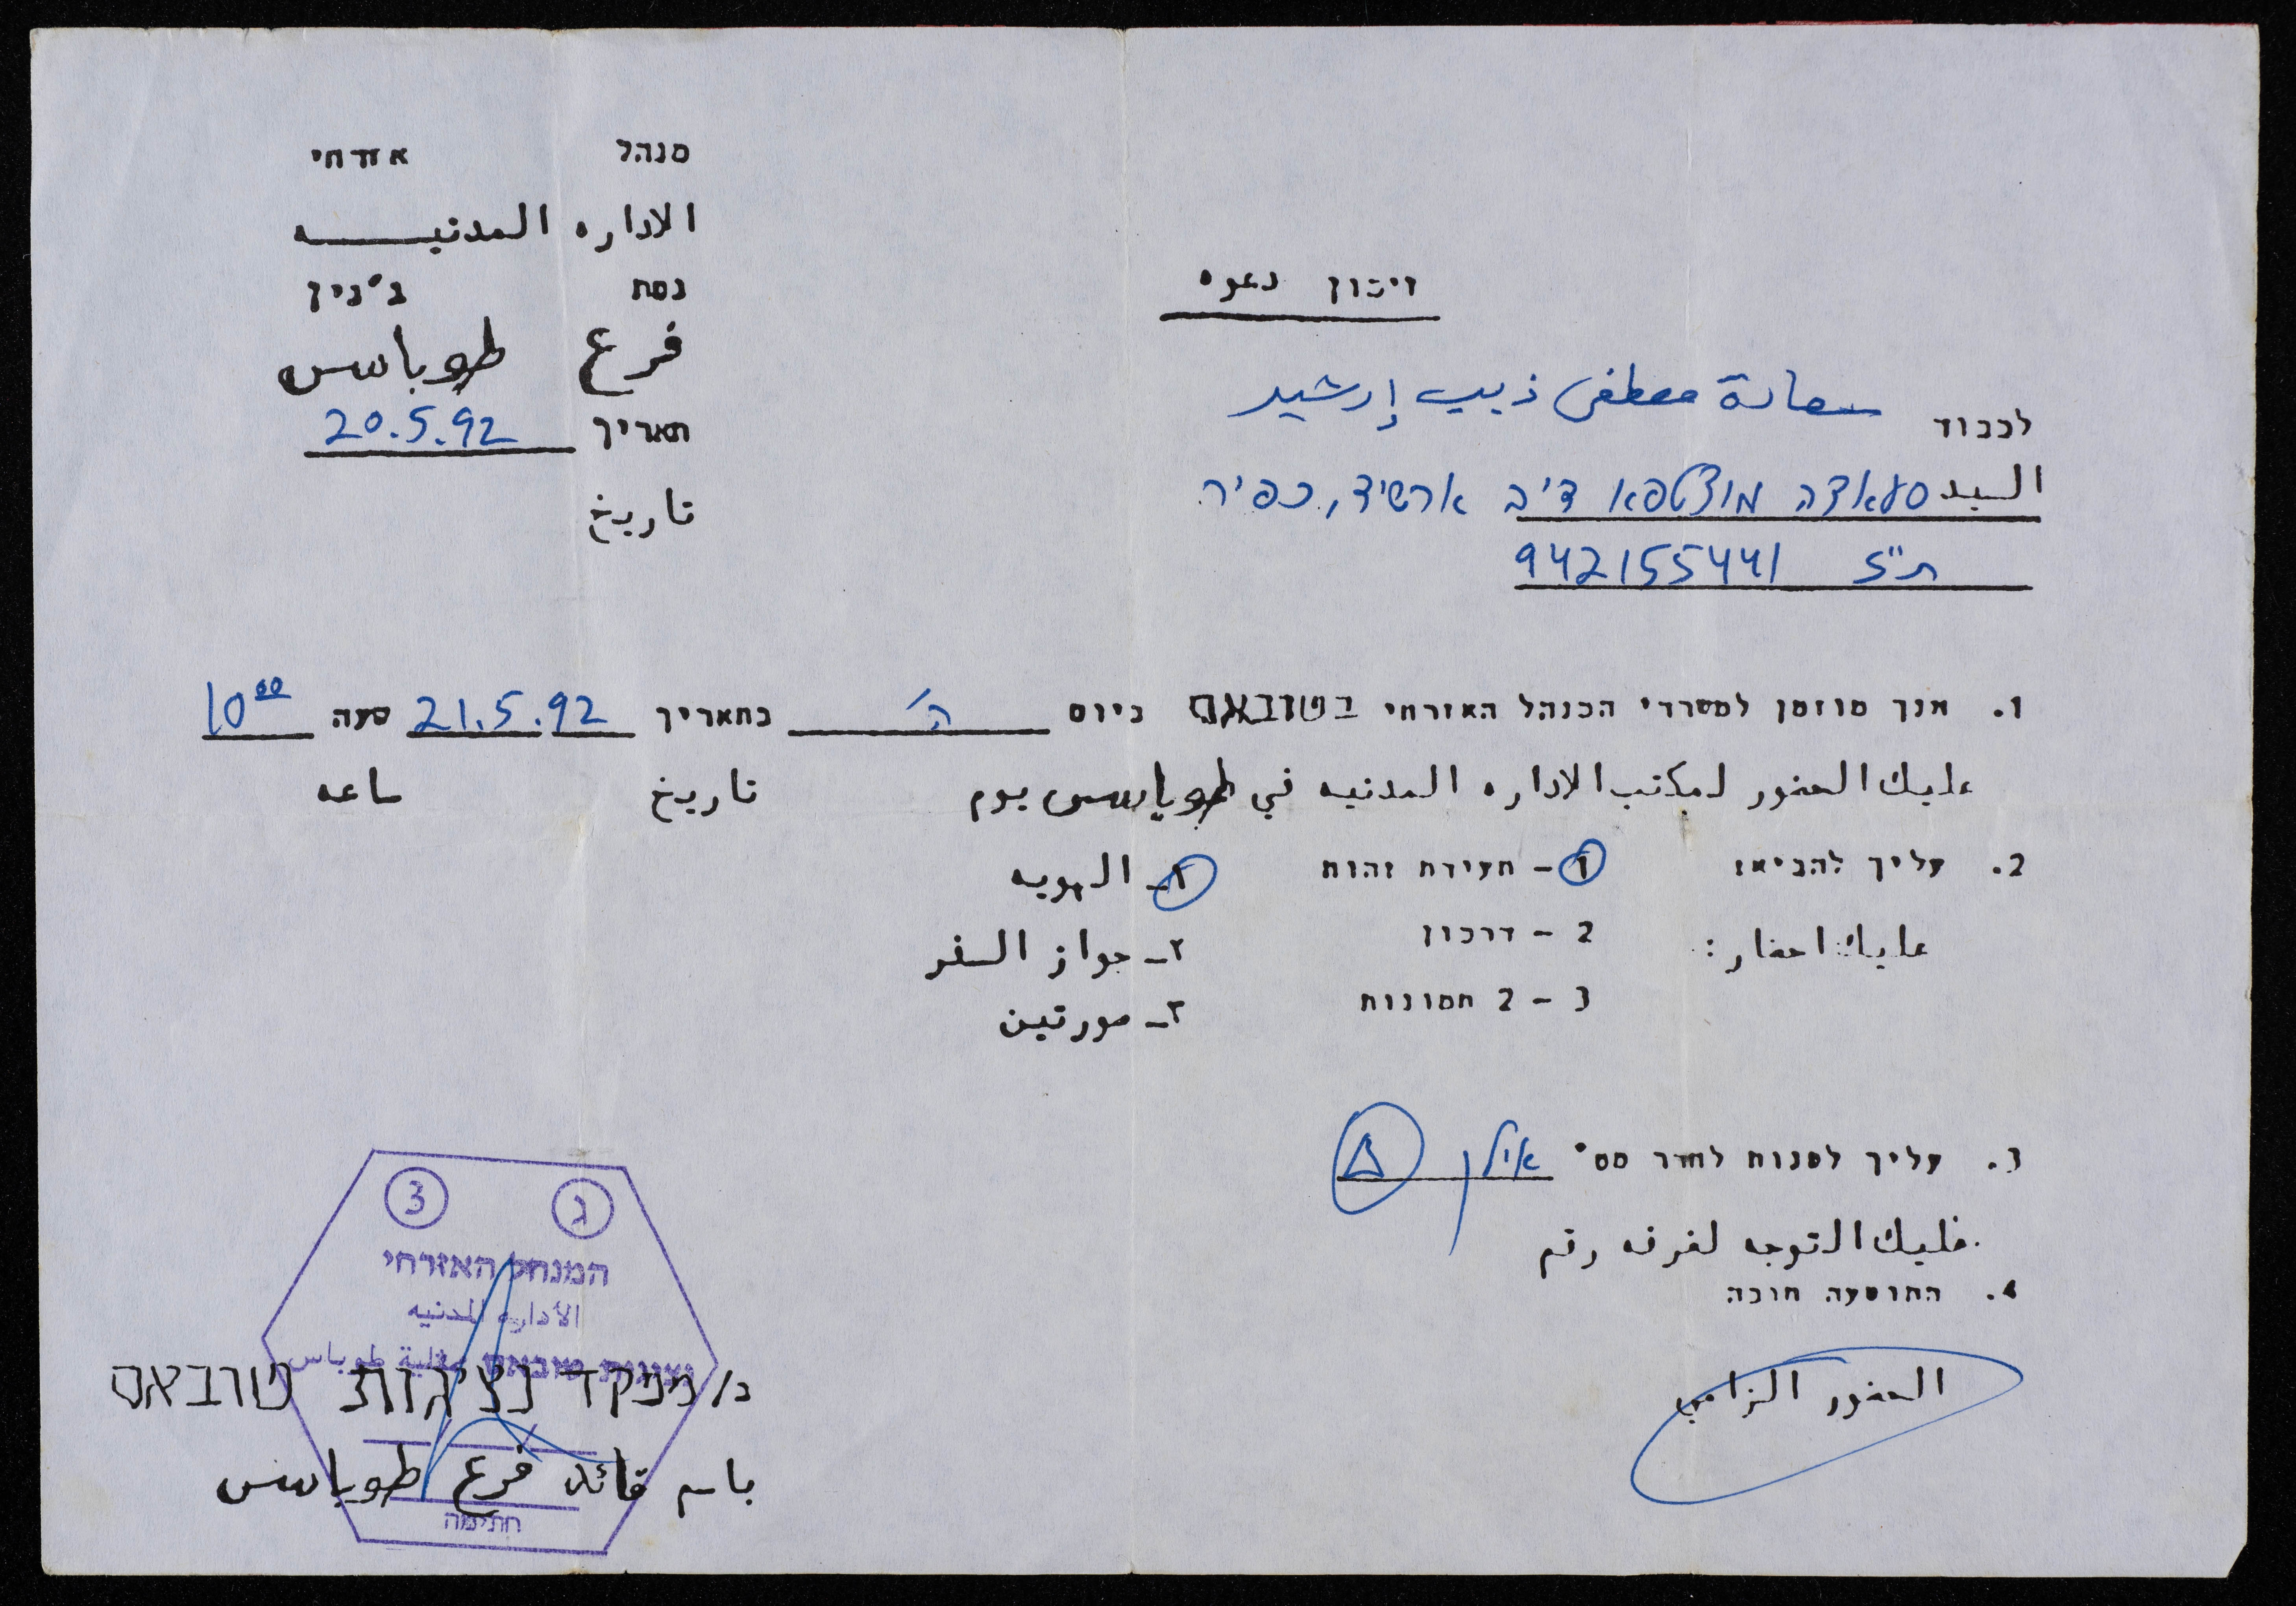 מנהל אזרחי
الاداره المدنيه
נפת ג'נין
فرع طوباس
תאריך 20.5.92
تاريخ
זימון دعوه
לכבוד سعادة مصطفى ذيب إرشيد
السيد סעאדה מוצטפא ד'יב ארשיד, כפיר
ת"ז 942155441
1. הנך מוזמן למשרדי המנהל האזרחי בטובאס ביום ה' בתאריך 21.5.92 שעה 10⁰⁰
عليك الحضور لمكتب الاداره المدنيه في طوباس يوم تاريخ ساعه
2. עליך להביא: 1 - תעודת זהות ١- الهويه
عليك احضار: 2 - דרכון ٢- جواز السفر
3 - 2 תמונות ٣- صورتين
3. עליך לפנות לחדר מס' אילן
فليك التوجه لغرفه رقم
4. ההופעה חובה
الحضور الزامي
ג 3
המנהל האזרחי
الادارة المدنيه
נציגות טובאס ممثلية طوباس
ב/ מפקד נציגות טובאס
باسم قائد فرع طوباس
חתימה